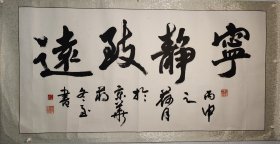 寧静致遠
丙申
之
荷月
於
京華
書